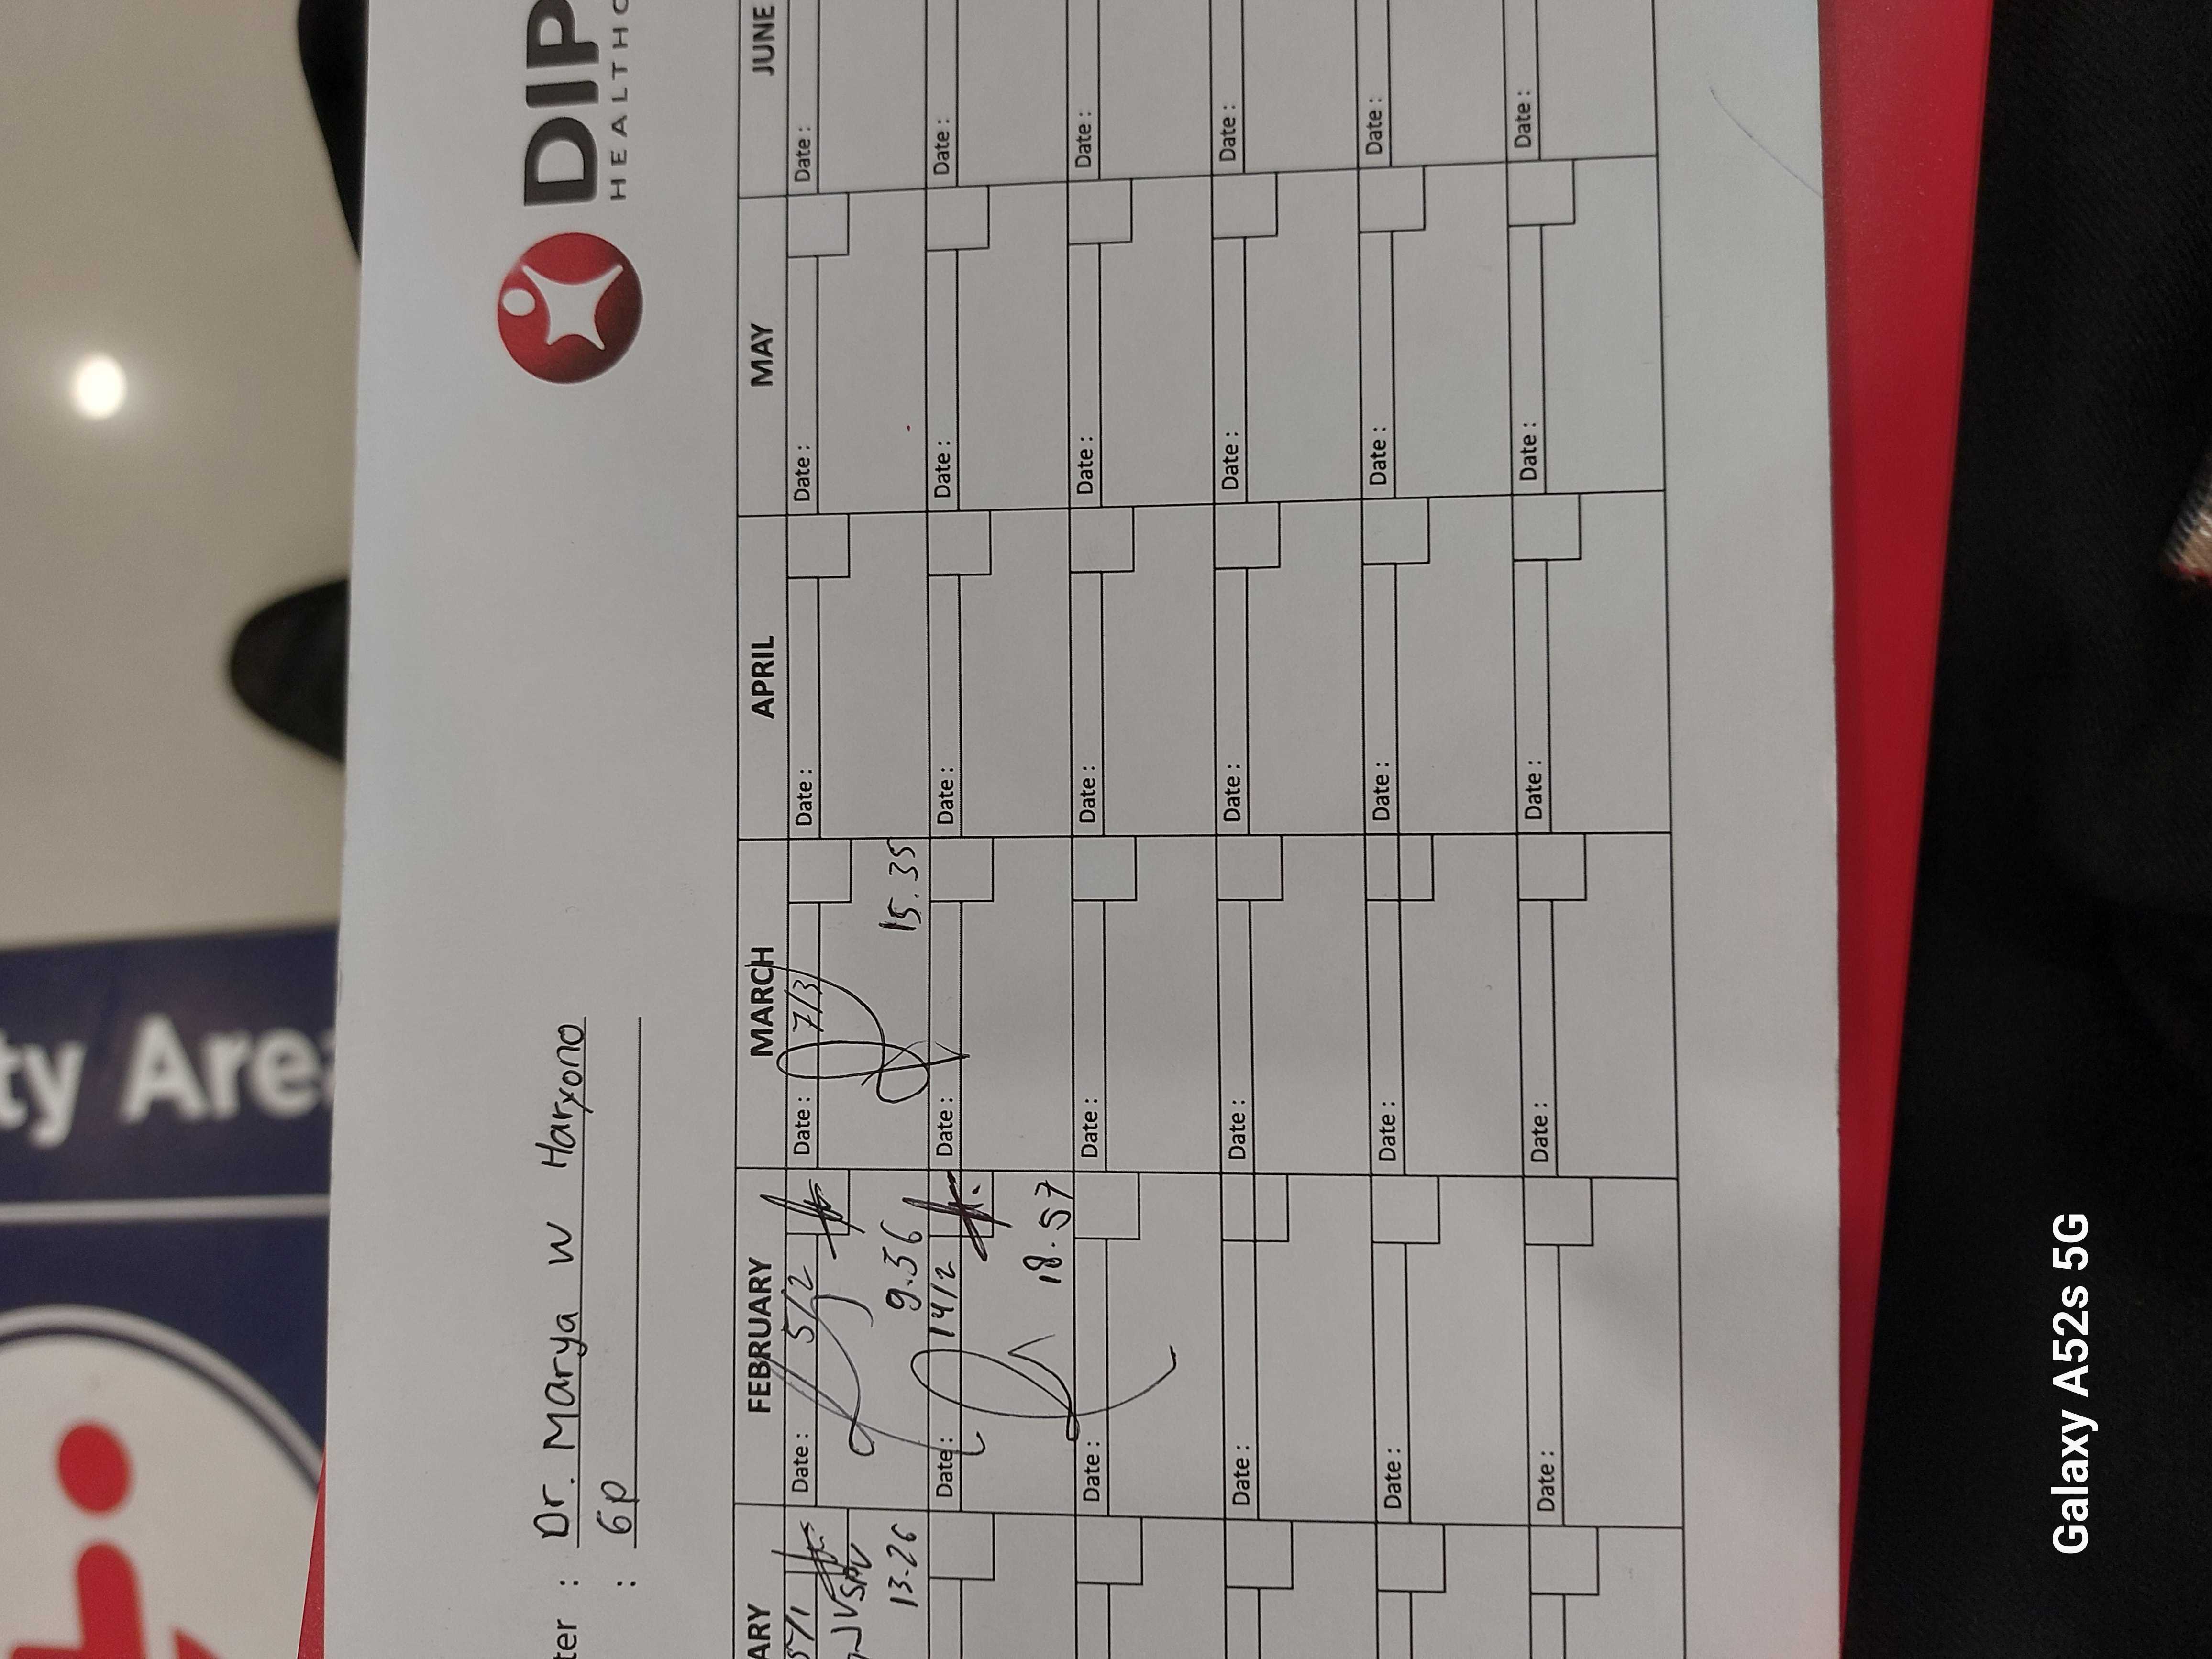 DIP
HEALTHC
ter : Dr. Marya W Haryono
: GP
ARY FEBRUARY MARCH APRIL MAY JUNE
5/1 Date : 5/2 Date : 7/3 Date : Date : Date :
JV SPV
13.26 9.56 15.35
Date : 14/2 Date : Date : Date : Date :
18.57
Date : Date : Date : Date : Date :
Date : Date : Date : Date : Date :
Date : Date : Date : Date : Date :
Date : Date : Date : Date : Date :
ty Area
Galaxy A52s 5G